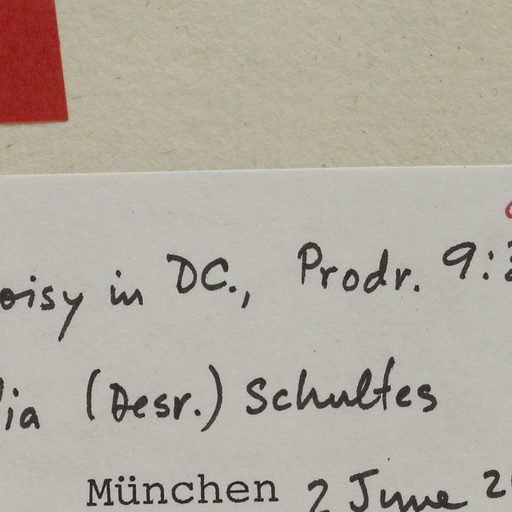 oisy in DC., Prodr. 9:
lia (Desr.) Schultes
München 2 June 2